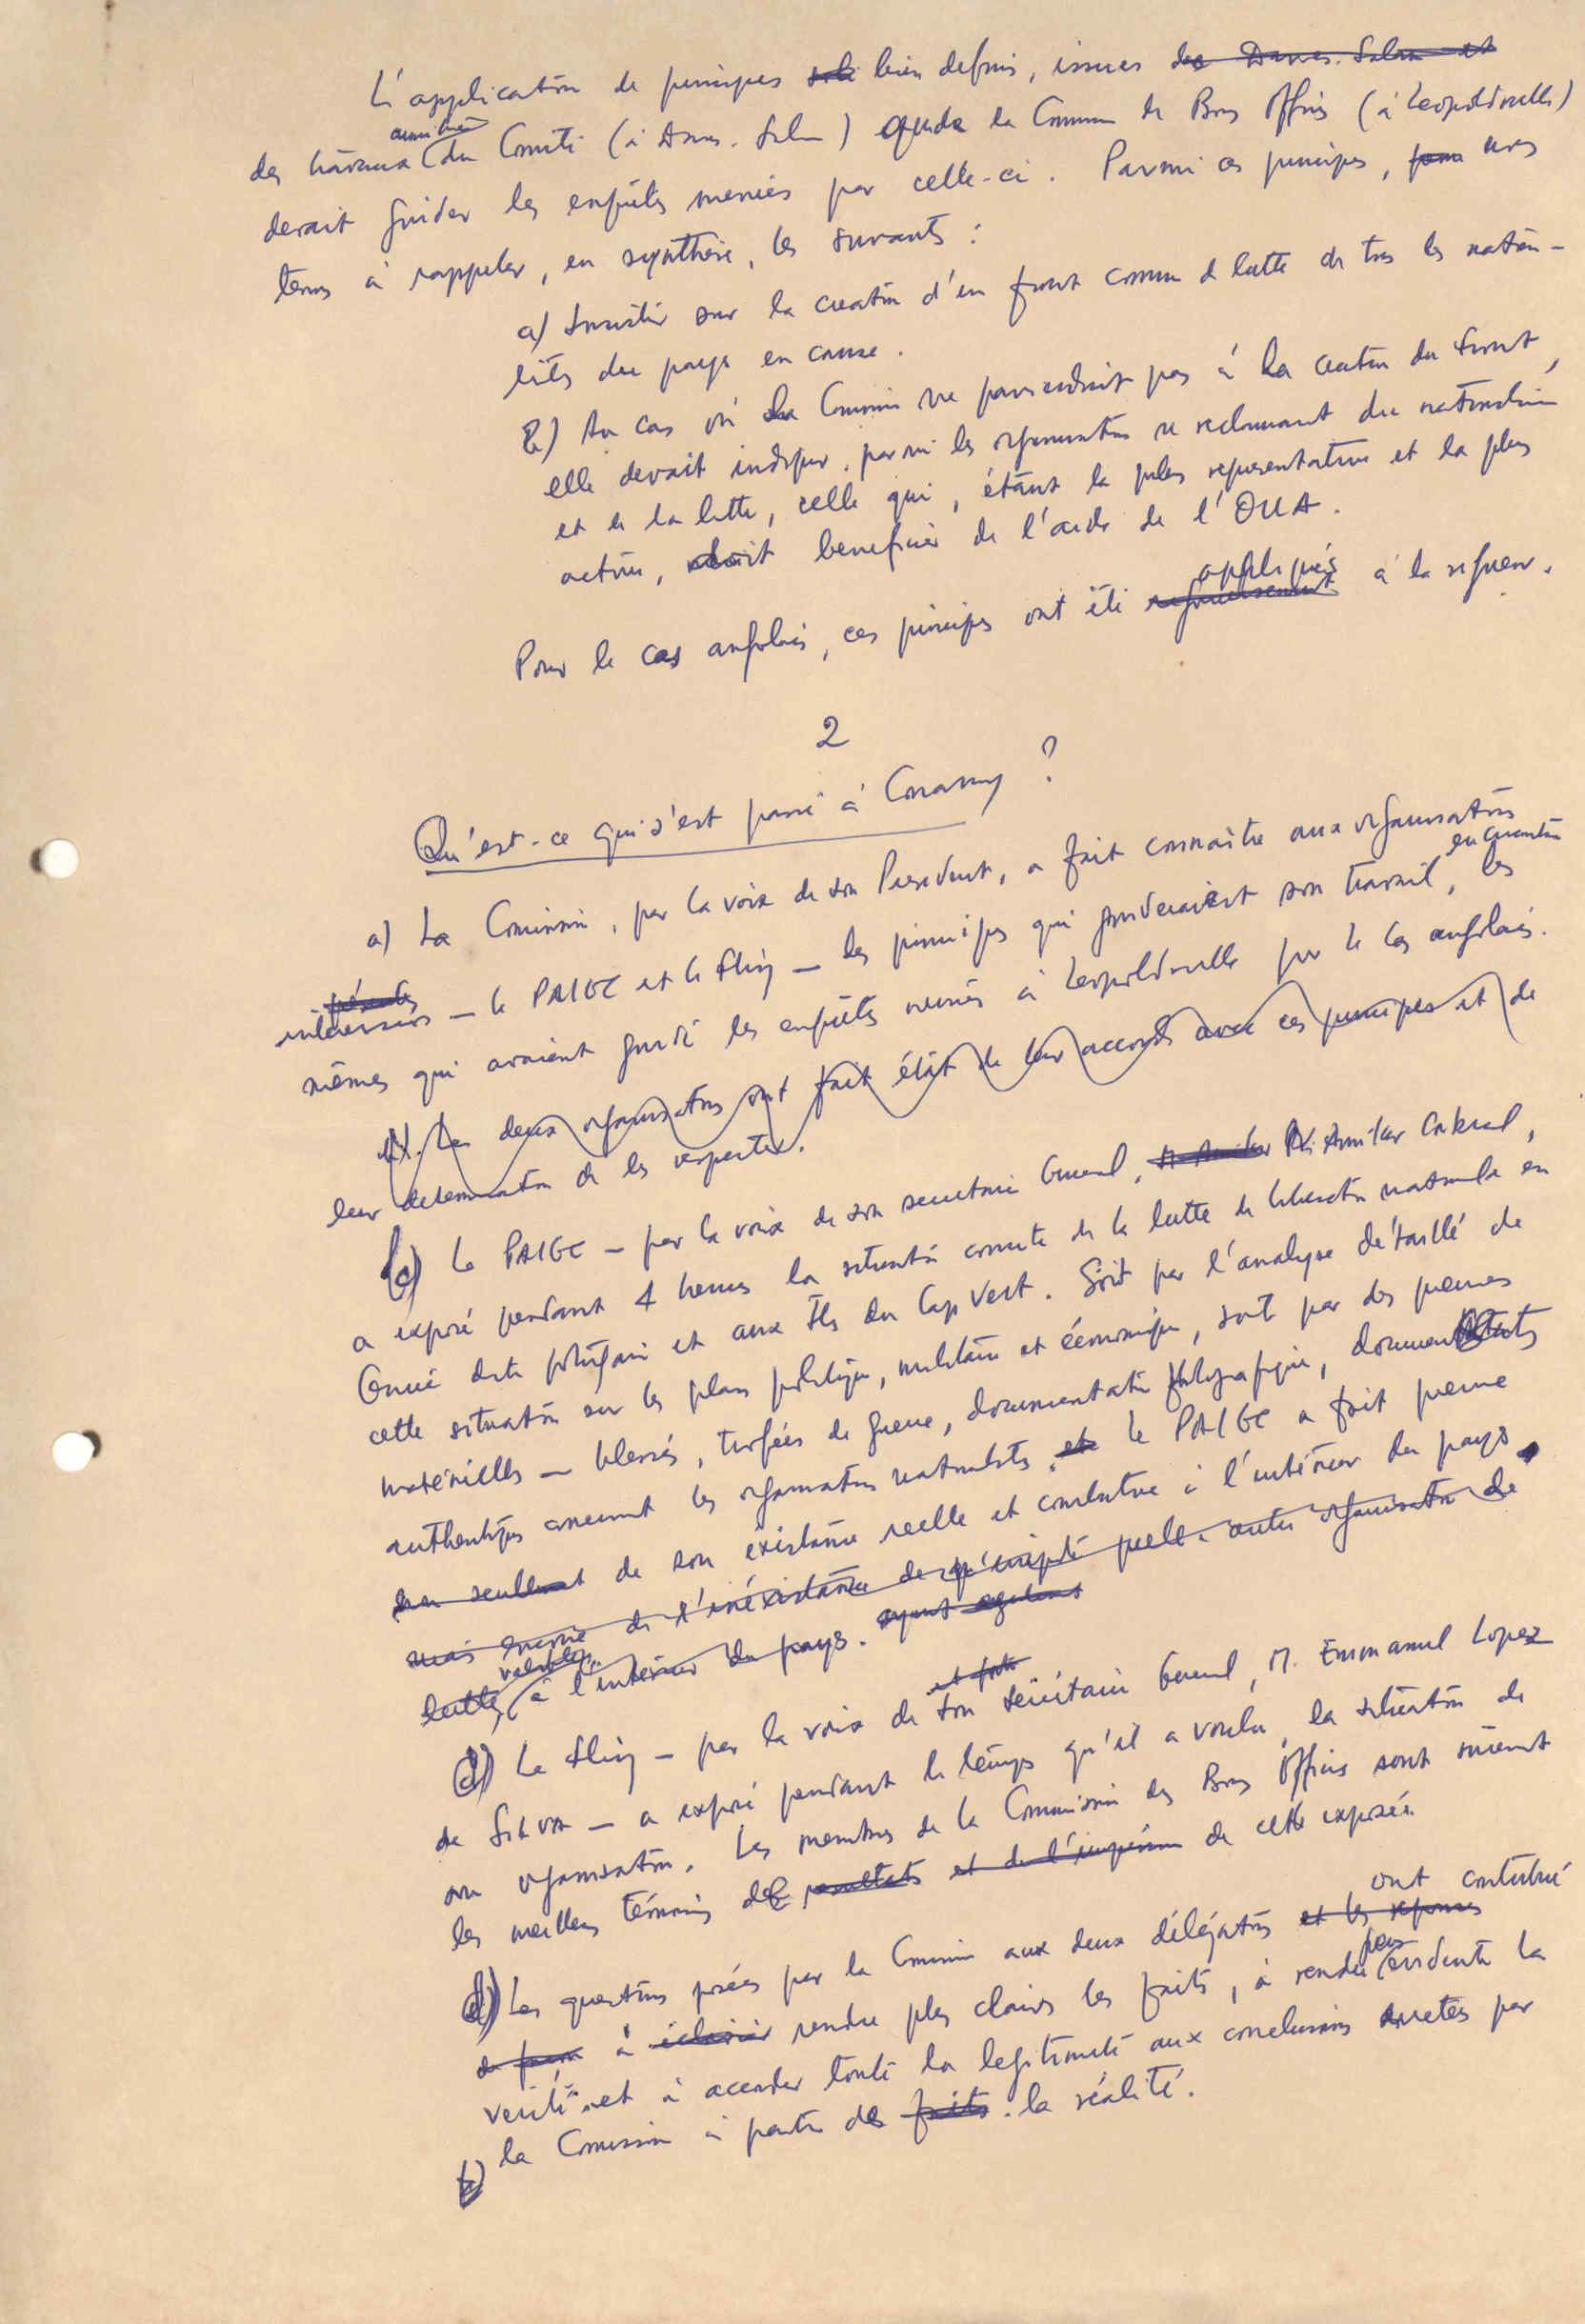 L'application de principes bien definis, issues des Dares. Salam et
des travaux du Comité (à Dares. Salam) et de la Commission de Bons Offices (à Leopoldville)
devait guider les enquêtes menées par celle-ci. Parmi ces principes, nous
tenons à rappeler, en synthèse, les suivants :
a) Insister sur la creation d'un front commun de lutte de tous les nationa-
listes du pays en cause.
b) Au cas où la Commission ne parviendrait pas à la creation du front,
elle devait indiquer, parmi les organisations se reclamant du nationalisme
et de la lutte, celle qui, étant la plus representative et la plus
active, doit beneficier de l'aide de l'OUA.
Pour le cas angolais, ces principes ont été rigoureusement appliqués à la rigueur.
2
Qu'est-ce qui s'est passé à Conakry ?
a) La Commission, par la voix de son President, a fait connaître aux organisations
en question
interessées — le PAIGC et le Fling — les principes qui guideraient son travail, les
mêmes qui avaient guidé les enquêtes menées à Leopoldville pour le cas angolais.
b). Les deux organisations ont fait état de leur accord avec ces principes et de
leur determination de les respecter.
b) Le PAIGC — par la voix de son secretaire General, M. Amilcar Cabral,
a exposé pendant 4 heures la situation concrete de la lutte de liberation nationale en
Guiné dite portugaise et aux Iles du Cap Vert. Soit par l'analyse détaillé de
cette situation sur les plans politique, militaire et économique, soit par des preuves
matérielles — blessés, trofées de guerre, documentation photografique, documents
authentiques concernant les organisations nationalistes, etc le PAIGC a fait preuve
non seulement de son existence reelle et combative à l'intérieur du pays
mais encore de l'inéxistance de n'importe quelle autre organisation de
lutte, valable, à l'interieur du pays. ayant egalement
et forte
c) Le Fling — par la voix de son Secrétaire General, M. Emmanuel Lopez
da SILVA — a exposé pendant le temps qu'il a voulu, la situation de
son organisation. Les membres de la Commission des Bons Offices sont surement
les meilleurs témoins des resultats et de l'impression de cette exposée.
d) Les questions posées par la Commission aux deux délégations et les reponses ont contribué
à éclaircir rendre plus clairs les faits, à rendre plus évidente la
verité et à accorder toute la legitimité aux conclusions arretées par
la Commission à partir de faits. la réalité.